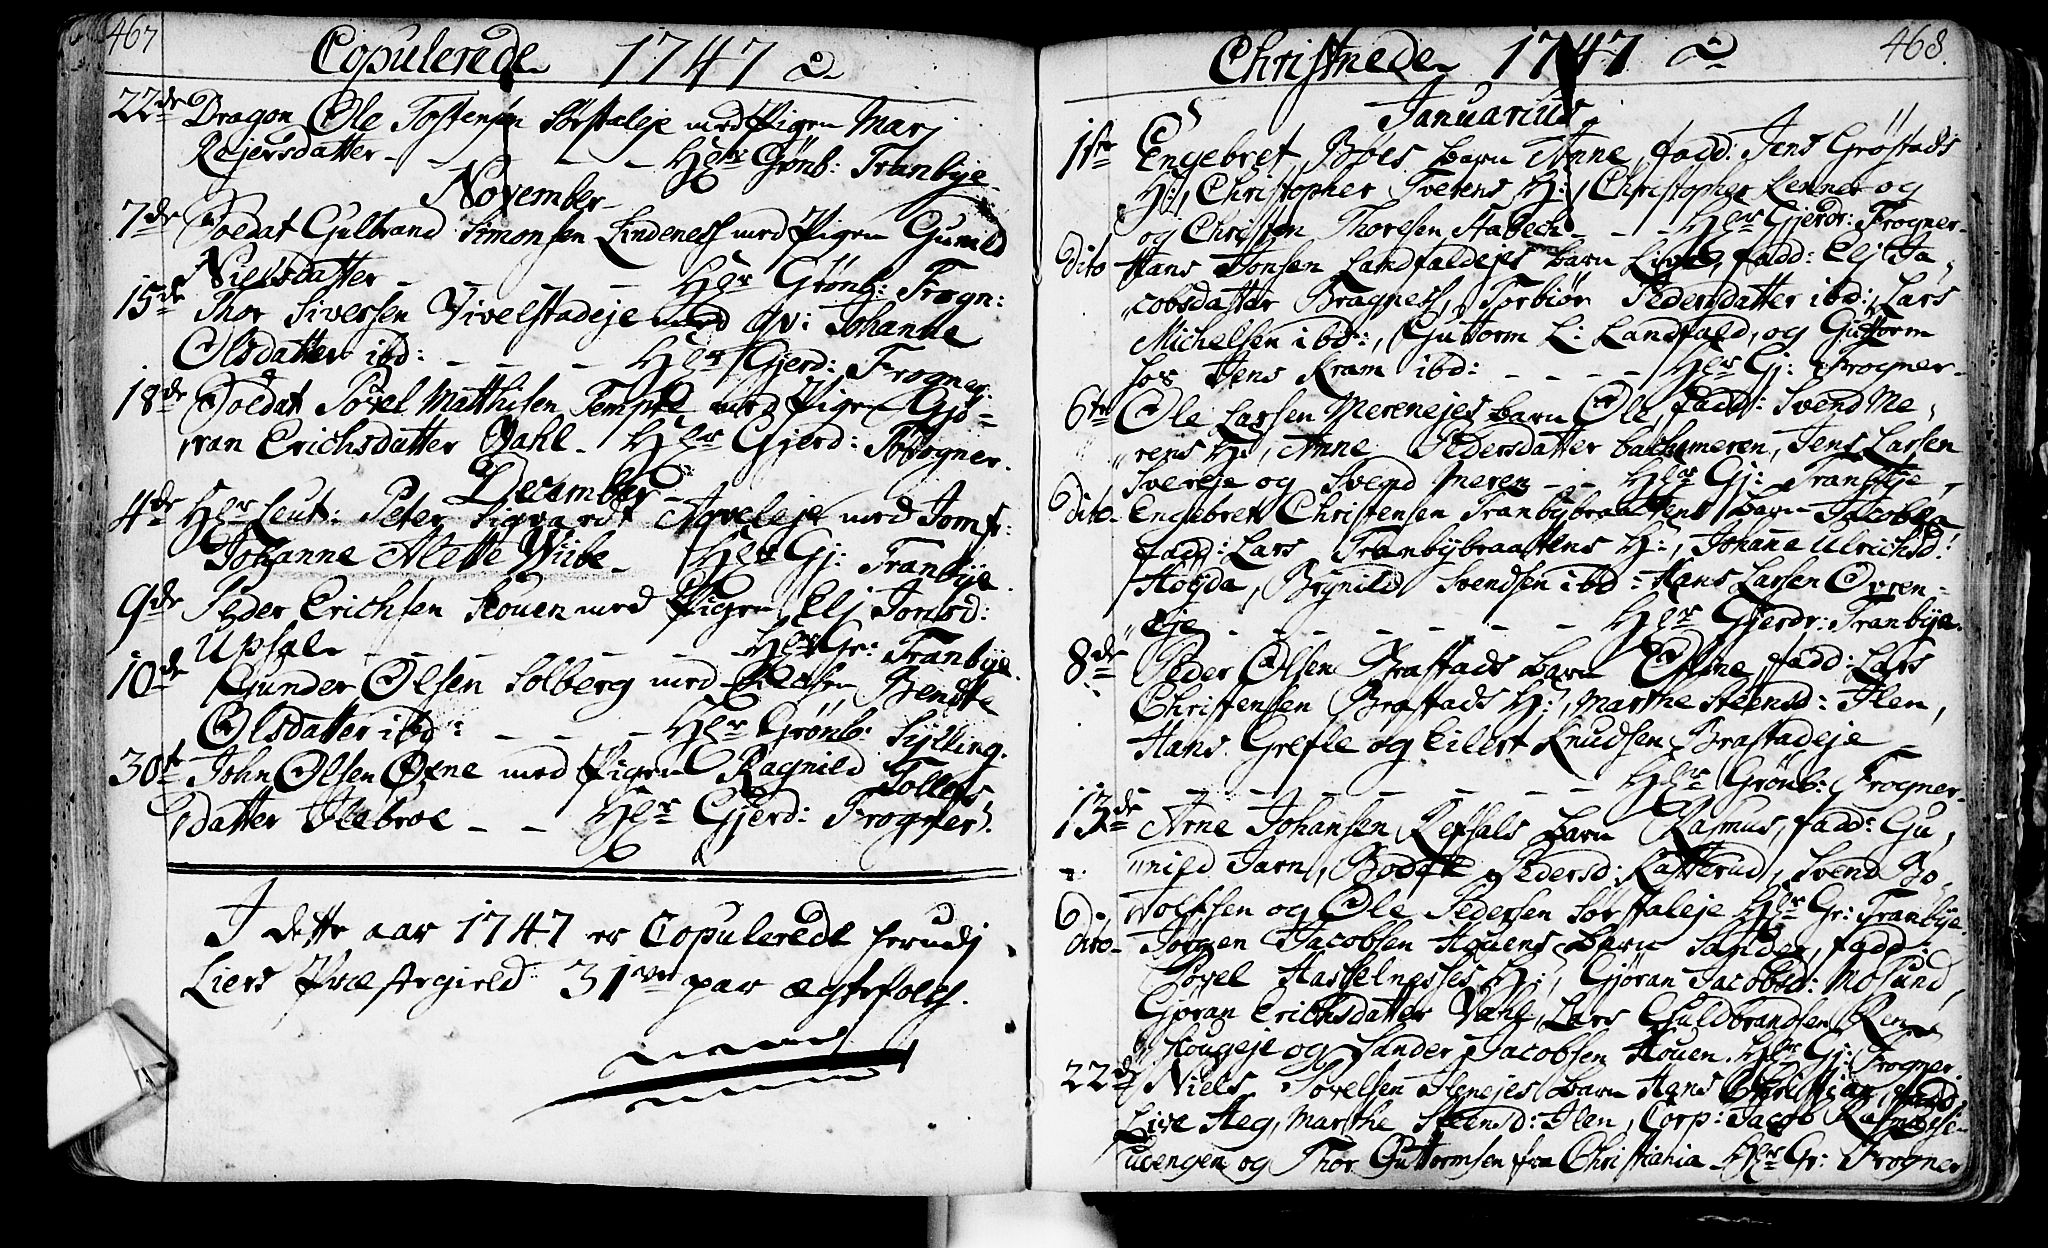 467
Copulerede 1747
22de Dragon Ole Tostensen Sørstaleje med Pigen Marj
Rejersdatter - - - - Hr Grønb: Tranbye.
November
7de Soldat Gulbrand Simonsen Lindeness med Pigen Gunild
Nielsdatter - - - - Hr Grønb: Frogn:
15de Thor Siversen Vivelstadeje med Qv: Johanne
Olsdatter ibd: - - - Hr Gjerd: Frogner.
18de Soldat Povel Matthisen Tempte med Pigen Gjø-
ran Erichsdatter Dahl. Hr Gjerd: Frogner.
December
4de Hr Leut: Peter Sigvardt med Jomfr:
Johanne Alette Wiibe - Hr Gj: Tranbye
9de Peder Erichsen Skouen med Pigen Elj Jonsd:
Upsal - - - - - Hr Gr: Tranbye.
10de Gunder Olsen Solberg med Bendte
Olsdatter ibd: - - - Hr Grønb: Sylling.
30te John Olsen Øxne med Pigen Ragnild Tollefs
datter Ilebroe - - Hr Gjerd: Frogner.
I dette aar 1747 er Copulerede herudj
Liers Præstegield 31 par ægtefolch.
468.
Christnede 1747
Januarius
1ste Engebret Bøes barn Anne, fadd: Jens Grøstads
H:, Christopher Tverens H:, Christopher Lenner og
og Christen Thoresen Stabech - - - Hr Gjerdr: Frogner-
Dito Hans Jonsen Landfaldejes barn Live, fadd: Elj Ja-
cobsdatter Bragness, Torbiør Pedersdatter ibd:, Lars
Michelsen ibd:, Guttorm L: Landfald, og Guttorm
hos Jens Kram ibd: - - - - Hr Gj: Frogner-
6te Ole Larsen Merenejes barn Ole, fadd: Svend Me-
rens H:, Anne Pedersdatter bachmeren, Jens Larsen
Svereje og Svend Meren - - Hr Gj: Tranbye,
Dito- Engebret Christensen Tranbybraattens barn Jacob,
fadd: Lars Tranbybraattens H:, Johanne Ulrichsd:
Høgda, Brynild Svendsen ibd: Hans Larsen Ovren-
eje - - - - - - - Hr Gjerdr: Tranbye.
8de Peder Olsen Brastads barn fadd: Lars
Christensen Brastads H:, Marthe Steensd: Ilen,
Hans Grefle og Eilert Knudsen Brastadeje -
- - - - - - Hr Grønb: Frogner-
13de Arne Johansen Refsals barn Rasmus, fadd: Gu-
nild Jarn, Bodel Pedersd: Katterud, Svend Bo-
olfsen og Ole Pedersen Sørstaleje Hr Gr: Tranbye.
Dito- Jørgen Jacobsen Houens barn Sander, fadd:
Povel Hasselnesses H:, Gjøran Jacobsd: Mosund,
Gjøran Erichsdatter Dahl, Lars Guldbrandsen
Hougeje og Sander Jacobsen Houen. Hr Gj: Frogner.
22de Niels Povelsen Ilenejes barn Hans Christian, fadd:
Live Heg, Marthe Steensd: Ilen, Corp: Jacob Rasmusen
og Thor Guttormsen fra Christiania Hr Gr: Frogner